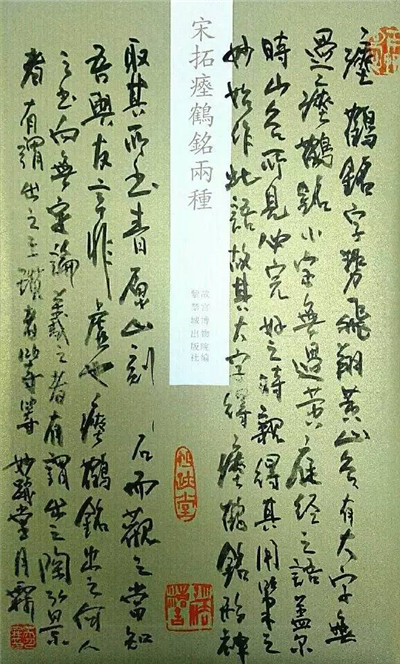 瘞鶴銘字势飛翔黄山谷有大字無
過瘞鶴銘小字無過黄庭经之語蓋宋
時山谷所見必完好之親得其用筆之
妙始作此語故其大字得瘞鶴銘形神
宋拓瘞鶴銘兩種
故宫博物院編
紫禁城出版社
取其所书青原山刻石而觀之當知
吾與友言非虚也瘞鶴銘出之何人
之向無定論者有謂出之陶弘景
者有謂出之王瓚者等等 妙堂月霖